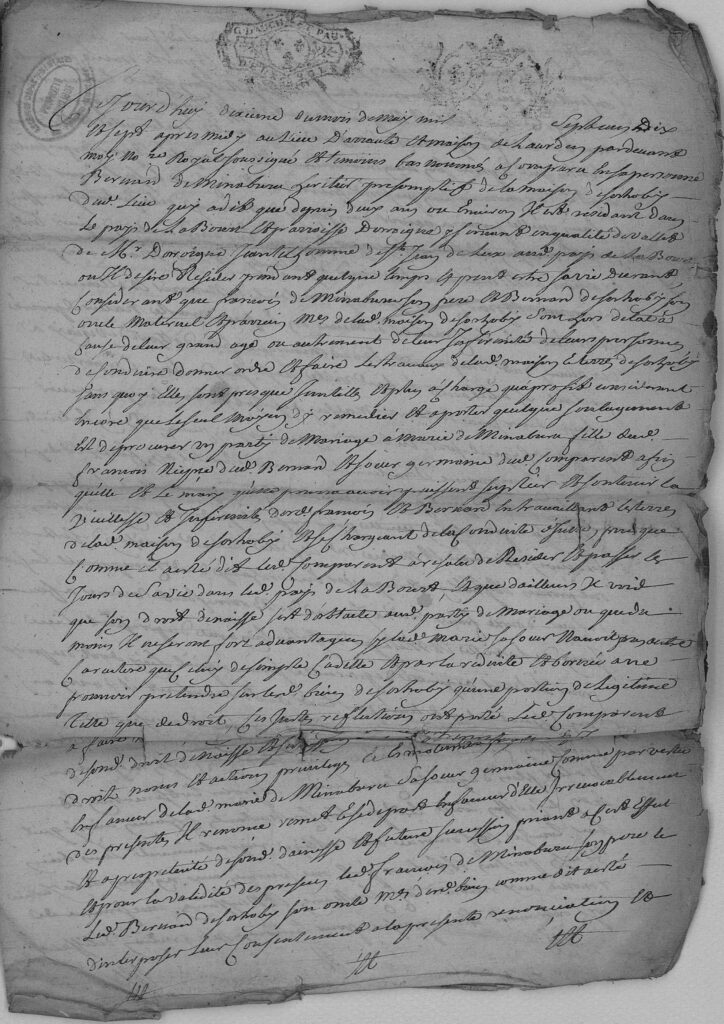 G D'AUCH PAU
DEUX SOLS
Jourdhuy dixieme du mois de may mil sept cens dix
et sept apres midy au lieu Darraute et maison de haurdea pardevant
moy nore Royal soussigné et temoins bas nommés a comparu en sa personne
Bernard de Minaburu heritier presomptif de la maison desorhoby
dud. lieu quy a dit que depuis deux ans ou Environ Il est residant dans
Le pays de La Bourt et parroisse Dorroigne y servant en qualité de vallet
de Mr. Dorroigne Jantilhomme de St. Jean de Luz aud. pays de La Bourt
ou Il desire Resider pendant quelque temps et peut estre sa vie durant
Considerant que francois de Minaburu son pere et Bernard desorhoby son
oncle Maternel et parrain Mes. de lad. maison desorhoby sont hors detat a
cause de leur grand age ou autrement de leur Infirmité de leurs personnes
de conduire donner ordre et faire les travaux de lad. maison et terres desorhoby
sans quoy Elles sont presque Inutilles et plus a charge qua profit considerant
Encore que le seul moyen dy remedier et aporter quelque soulagement
Est de procurer un party de Mariage à Marie de Minaburu fille dud.
francois Niepce dud. Bernard et soeur germaine dud. comparant afin
quelle et le mary quelle pourra avoir puissent suporter et soutenir la
Vieillesse et Infirmités desd. francois et Bernard En travaillant les terres
de lad. maison desorhoby et se chargeant de la Conduite puis que
Comme il a esté dit led. Comparant a resolu de Resider et passer les
Jours de sa vie dans led. pays de La Bourt, et que dailleurs Il void
que son droit dainesse sert dobstacle aud. party de Mariage ou que du
moins Il ne seront fort advantageux sy lad. marie sa soeur Navoit pas autre
Caractere que Celuy de simple Cadette et par la reduite et bornée a ne
pouvoir pretendre sur lesd. biens desorhoby quune portion de Legitime
Telle que de droit, Ces Justes reflections ont porté Led. Comparant
a faire
de son droit dainesse et
droit noms et actions privileges
En faveur de lad. marie de Minaburu sa soeur germaine comme par vertu
des presentes Il renonce remet et se depart En faveur d'Elle Irrevocablement
et a perpetuité de son d. dainesse et future succession priant a cet Effet
et pour la validité des presentes led. francois de Minaburu son pere et
led. Bernard desorhoby son oncle Mes. desd. biens comme dit a esté
dinterposer Leur Consentement a la presente renonciation et